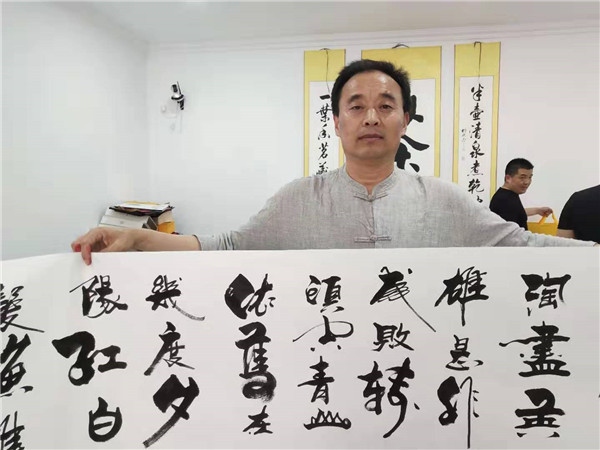 半壺清泉煮乾
一葉香茗
淘盡英
雄是非
成敗轉
頭空青山
依舊在
幾度夕
陽紅白
髮漁樵